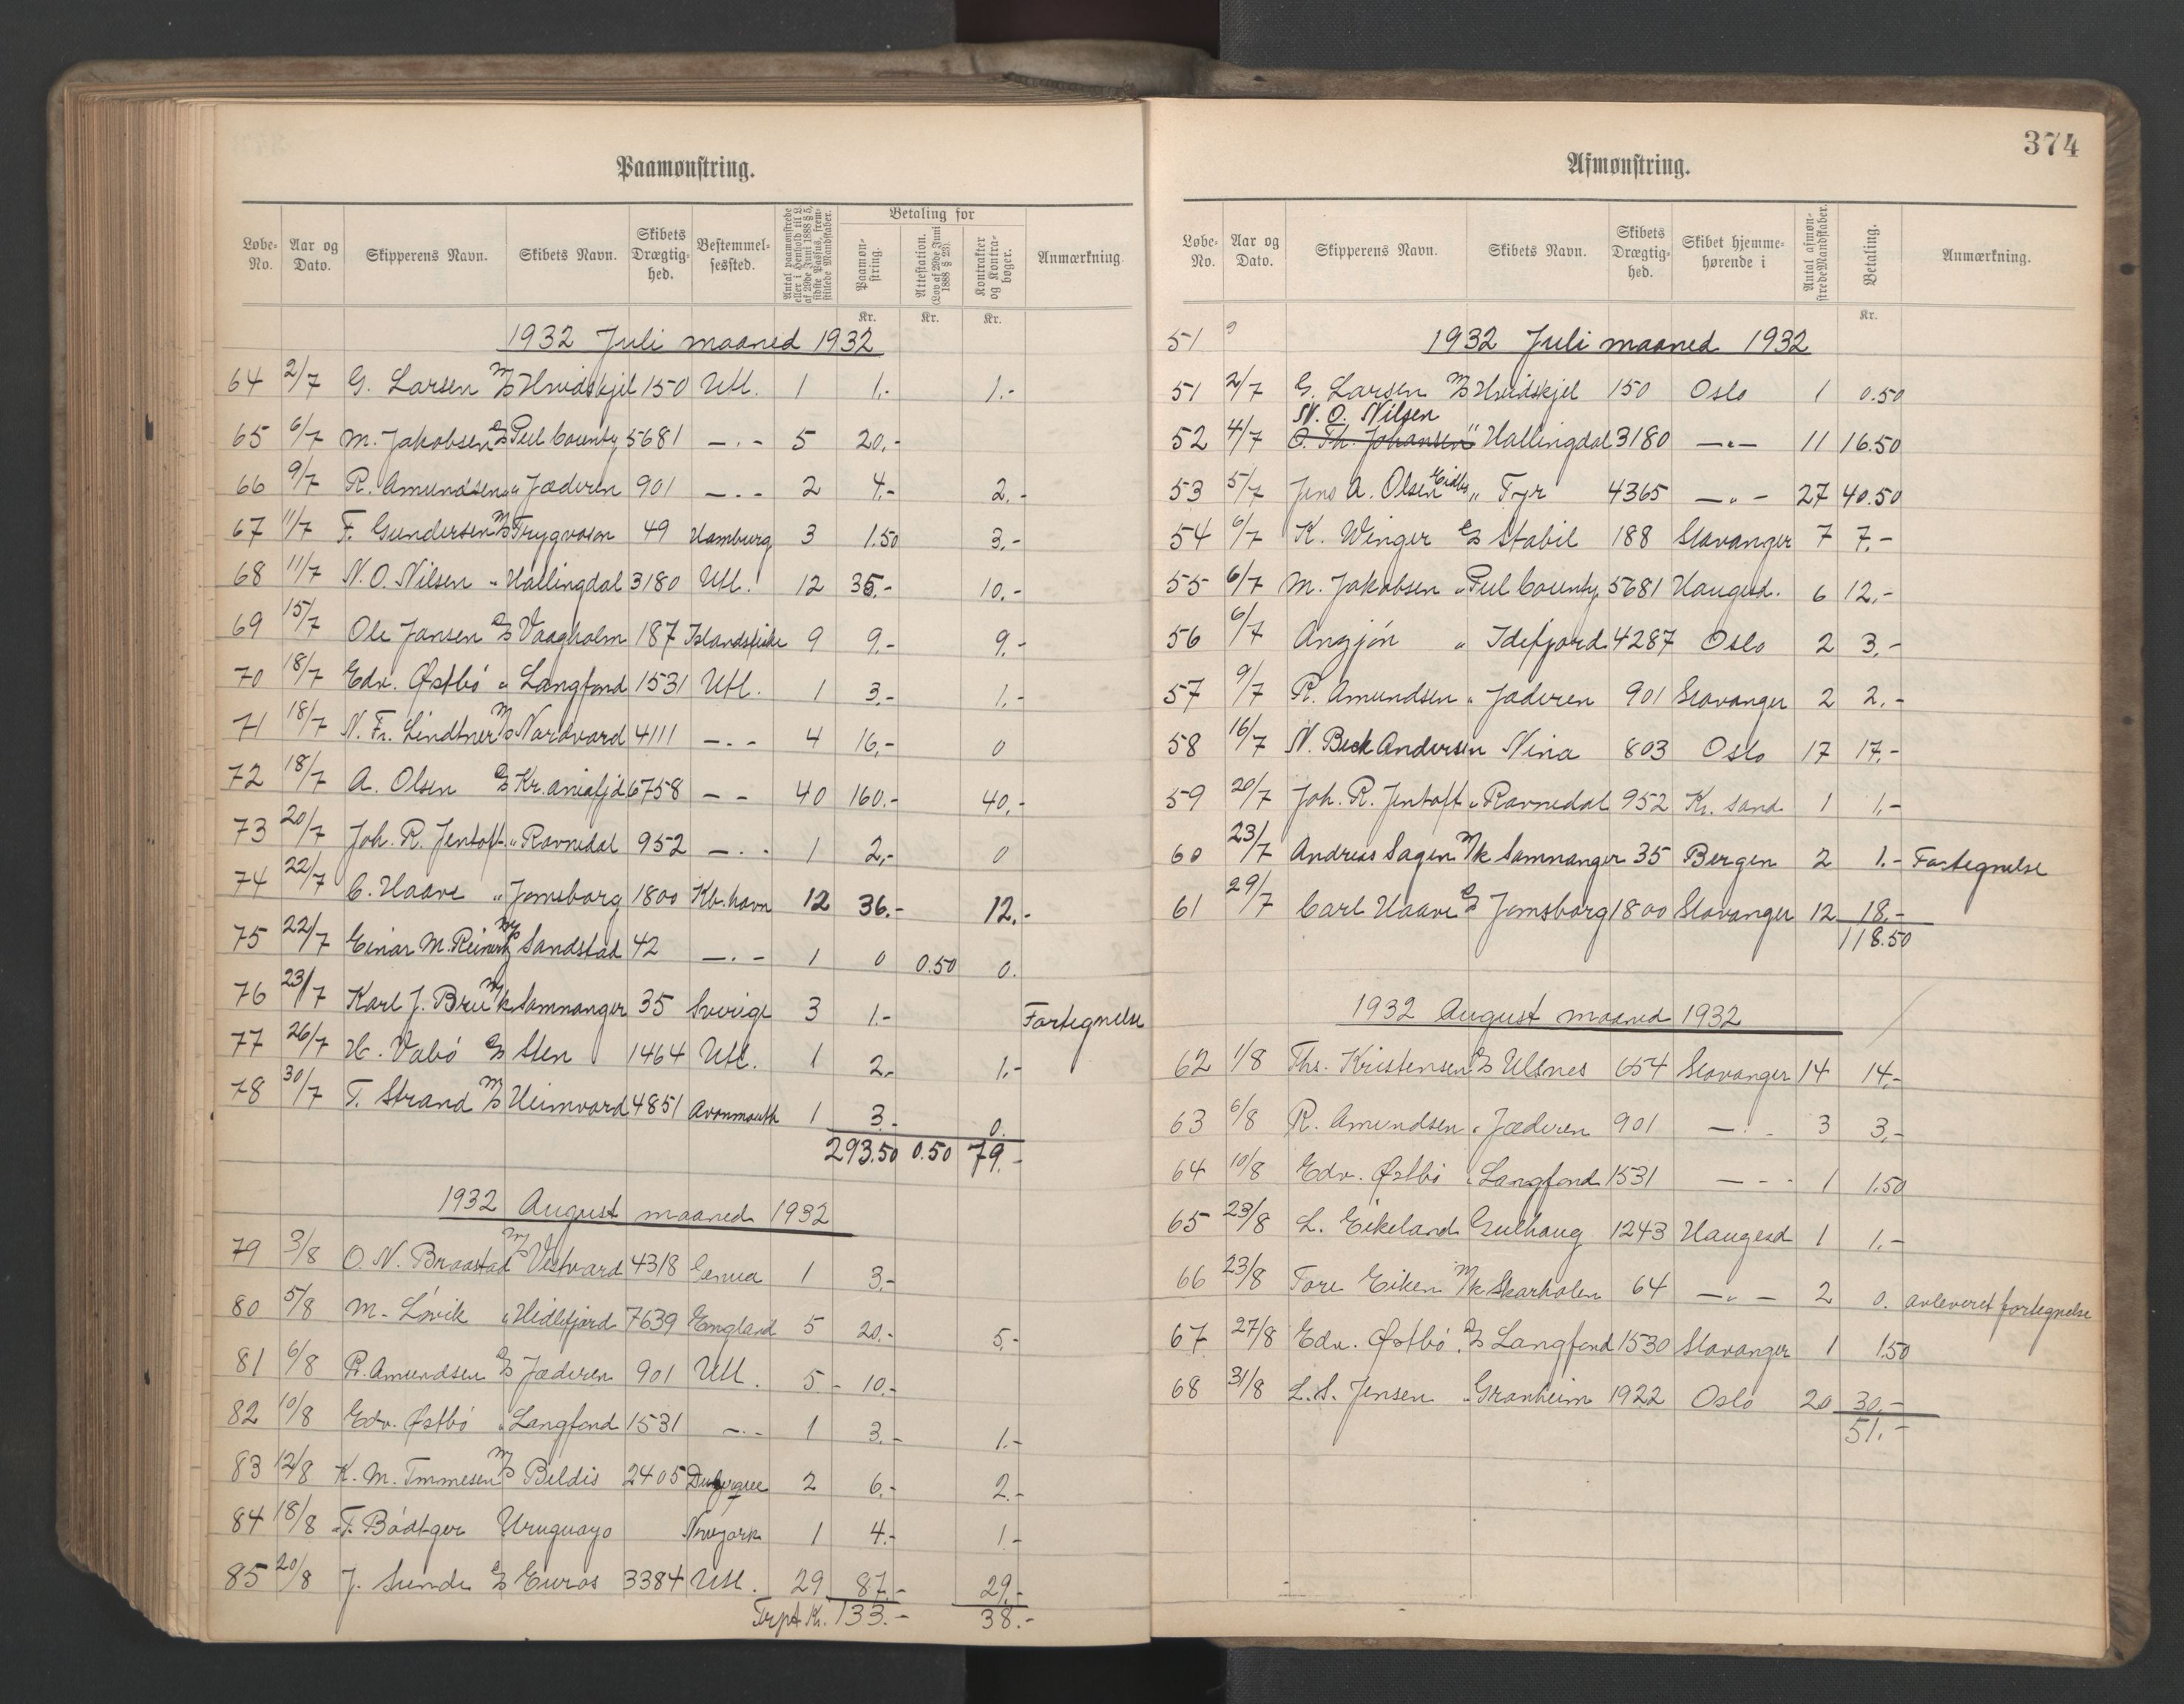 Paamønstring.
Løbe-No. Aar og Dato. Skipperens Navn. Skibets Navn. Skibets Drægtig-hed. Bestemmel-sessted. Antal paamønstrede eller i Henhold til L. af 29de Juni 1888 § 5, sidste Passus, frem-stillede Mandskaber. Betaling for Paamøn-string. Attestation. (Lov af 29de Juni 1888 § 23). Kontrakter og Kontra-bøger. Anmærkning.
Kr. Kr. Kr.
1932 Juli maaned 1932
64 2/7 G. Larsen M/S Hvidskjel 150 Utl. 1 1.- 1.-
65 6/7 M. Jakobsen D/S Peel County 5681 -"- 5 20.-
66 9/7 R. Amundsen " Jæderen 901 -"- 2 4.- 2.-
67 11/7 F. Gundersen M/S Trygvason 49 Hamburg 3 1.50 3.-
68 11/7 N.O. Nilsen " Hallingdal 3180 Utl. 12 35.- 10.-
69 15/7 Ole Jansen D/S Vaagholm 187 Islandsfiske 9 9.- 9.-
70 18/7 Edv. Østbö " Langfond 1531 Utl. 1 3.- 1.-
71 18/7 N. Fr. Lindtner M/S Nordvard 4111 -"- 4 16.- 0
72 18/7 A. Olsen D/S Kr.aniafjd 6758 - - 40 160.- 40.-
73 20/7 Joh. R. Jentoft " Ravnedal 952 -"- 1 2.- 0
74 22/7 C. Haave " Jomsborg 1800 Kb.havn 12 36.- 12.-
75 22/7 Einar M. Reinertz M/S Sandstad 42 -"- 1 0 0.50 0.
76 23/7 Karl J. Bru M/k Samnanger 35 Sverige 3 1.- Fortegnelse
77 26/7 H. Vabö D/S Sten 1464 Utl. 1 2.- 1.-
78 30/7 T. Strand M/S Heimvard 4851 Avonmouth 1 3.- 0.
293.50 0.50 79.-
1932 August maaned 1932
79 3/8 O.N. Braastad M/S Vestvard 4318 Genua 1 3.-
80 5/8 M. Lövik " Hidlefjord 7639 England 5 20.- 5.-
81 6/8 R. Amundsen D/S Jæderen 901 Utl. 5 - 10.-
82 10/8 Edv. Østbö " Langfond 1531 -"- 1 3.- 1.-
83 12/8 K. M. Tmmesen M/S Beldis 2405 2 6.- 2.-
84 18/8 F. Bödtger Uruguayo Newyork 1 4.- 1.-
85 20/8 J. Sunde D/S Euros 3384 Utl. 29 87.- 29.-
Trpt Kr. 133.- 38.-
374
Afmønstring.
Løbe-No. Aar og Dato. Skipperens Navn. Skibets Navn. Skibets Drægtig-hed. Skibet hjemme-hørende i Antal afmøn-strede Mandskaber. Betaling. Anmærkning.
Kr.
51 1932 Juli maaned 1932
51 2/7 G. Larsen M/S Hvidskjel 150 Oslo 1 0.50
N. O. Nilsen
52 4/7 O. Th. Johansen " Hallingdal 3180 -"- 11 16.50
53 5/7 Jens A. Olsen Eidbo " Tyr 4365 -"- 27 40.50
54 6/7 K. Winger D/S Stabil 188 Stavanger 7 7.-
55 6/7 M. Jakobsen " Peel County 5681 Haugesd. 6 12.-
56 6/7 Angjön " Idefjord 4287 Oslo 2 3.-
57 9/7 R. Amundsen " Jæderen 901 Stavanger 2 2.-
58 16/7 N. Beck Andersen Nina 803 Oslo 17 17.-
59 20/7 Joh. R. Jentoft " Ravnedal 952 Kr. sand 1 1.-
60 23/7 Andreas Sagen M/k Samnanger 35 Bergen 2 1.- Fortegnelse
61 29/7 Carl Haave D/S Jomsborg 1800 Stavanger 12 18.-
118.50
1932 August maaned 1932
62 1/8 Ths. Kristensen D/S Ulsnes 654 Stavanger 14 14.-
63 6/8 R. Amundsen " Jæderen 901 -"- 3 3.-
64 10/8 Edv. Østbö " Langfond 1531 - - - 1 1.50
65 23/8 L. Eikeland Gulhaug 1243 Haugesd 1 1.-
66 23/8 Tore Eiken M/k Skarholm 64 -"- 2 0. avleveret fortegnelse
67 27/8 Edv. Østbö D/S Langfond 1530 Stavanger 1 1.50
68 31/8 L.S. Jensen " Granheim 1922 Oslo 20 30.-
51.-